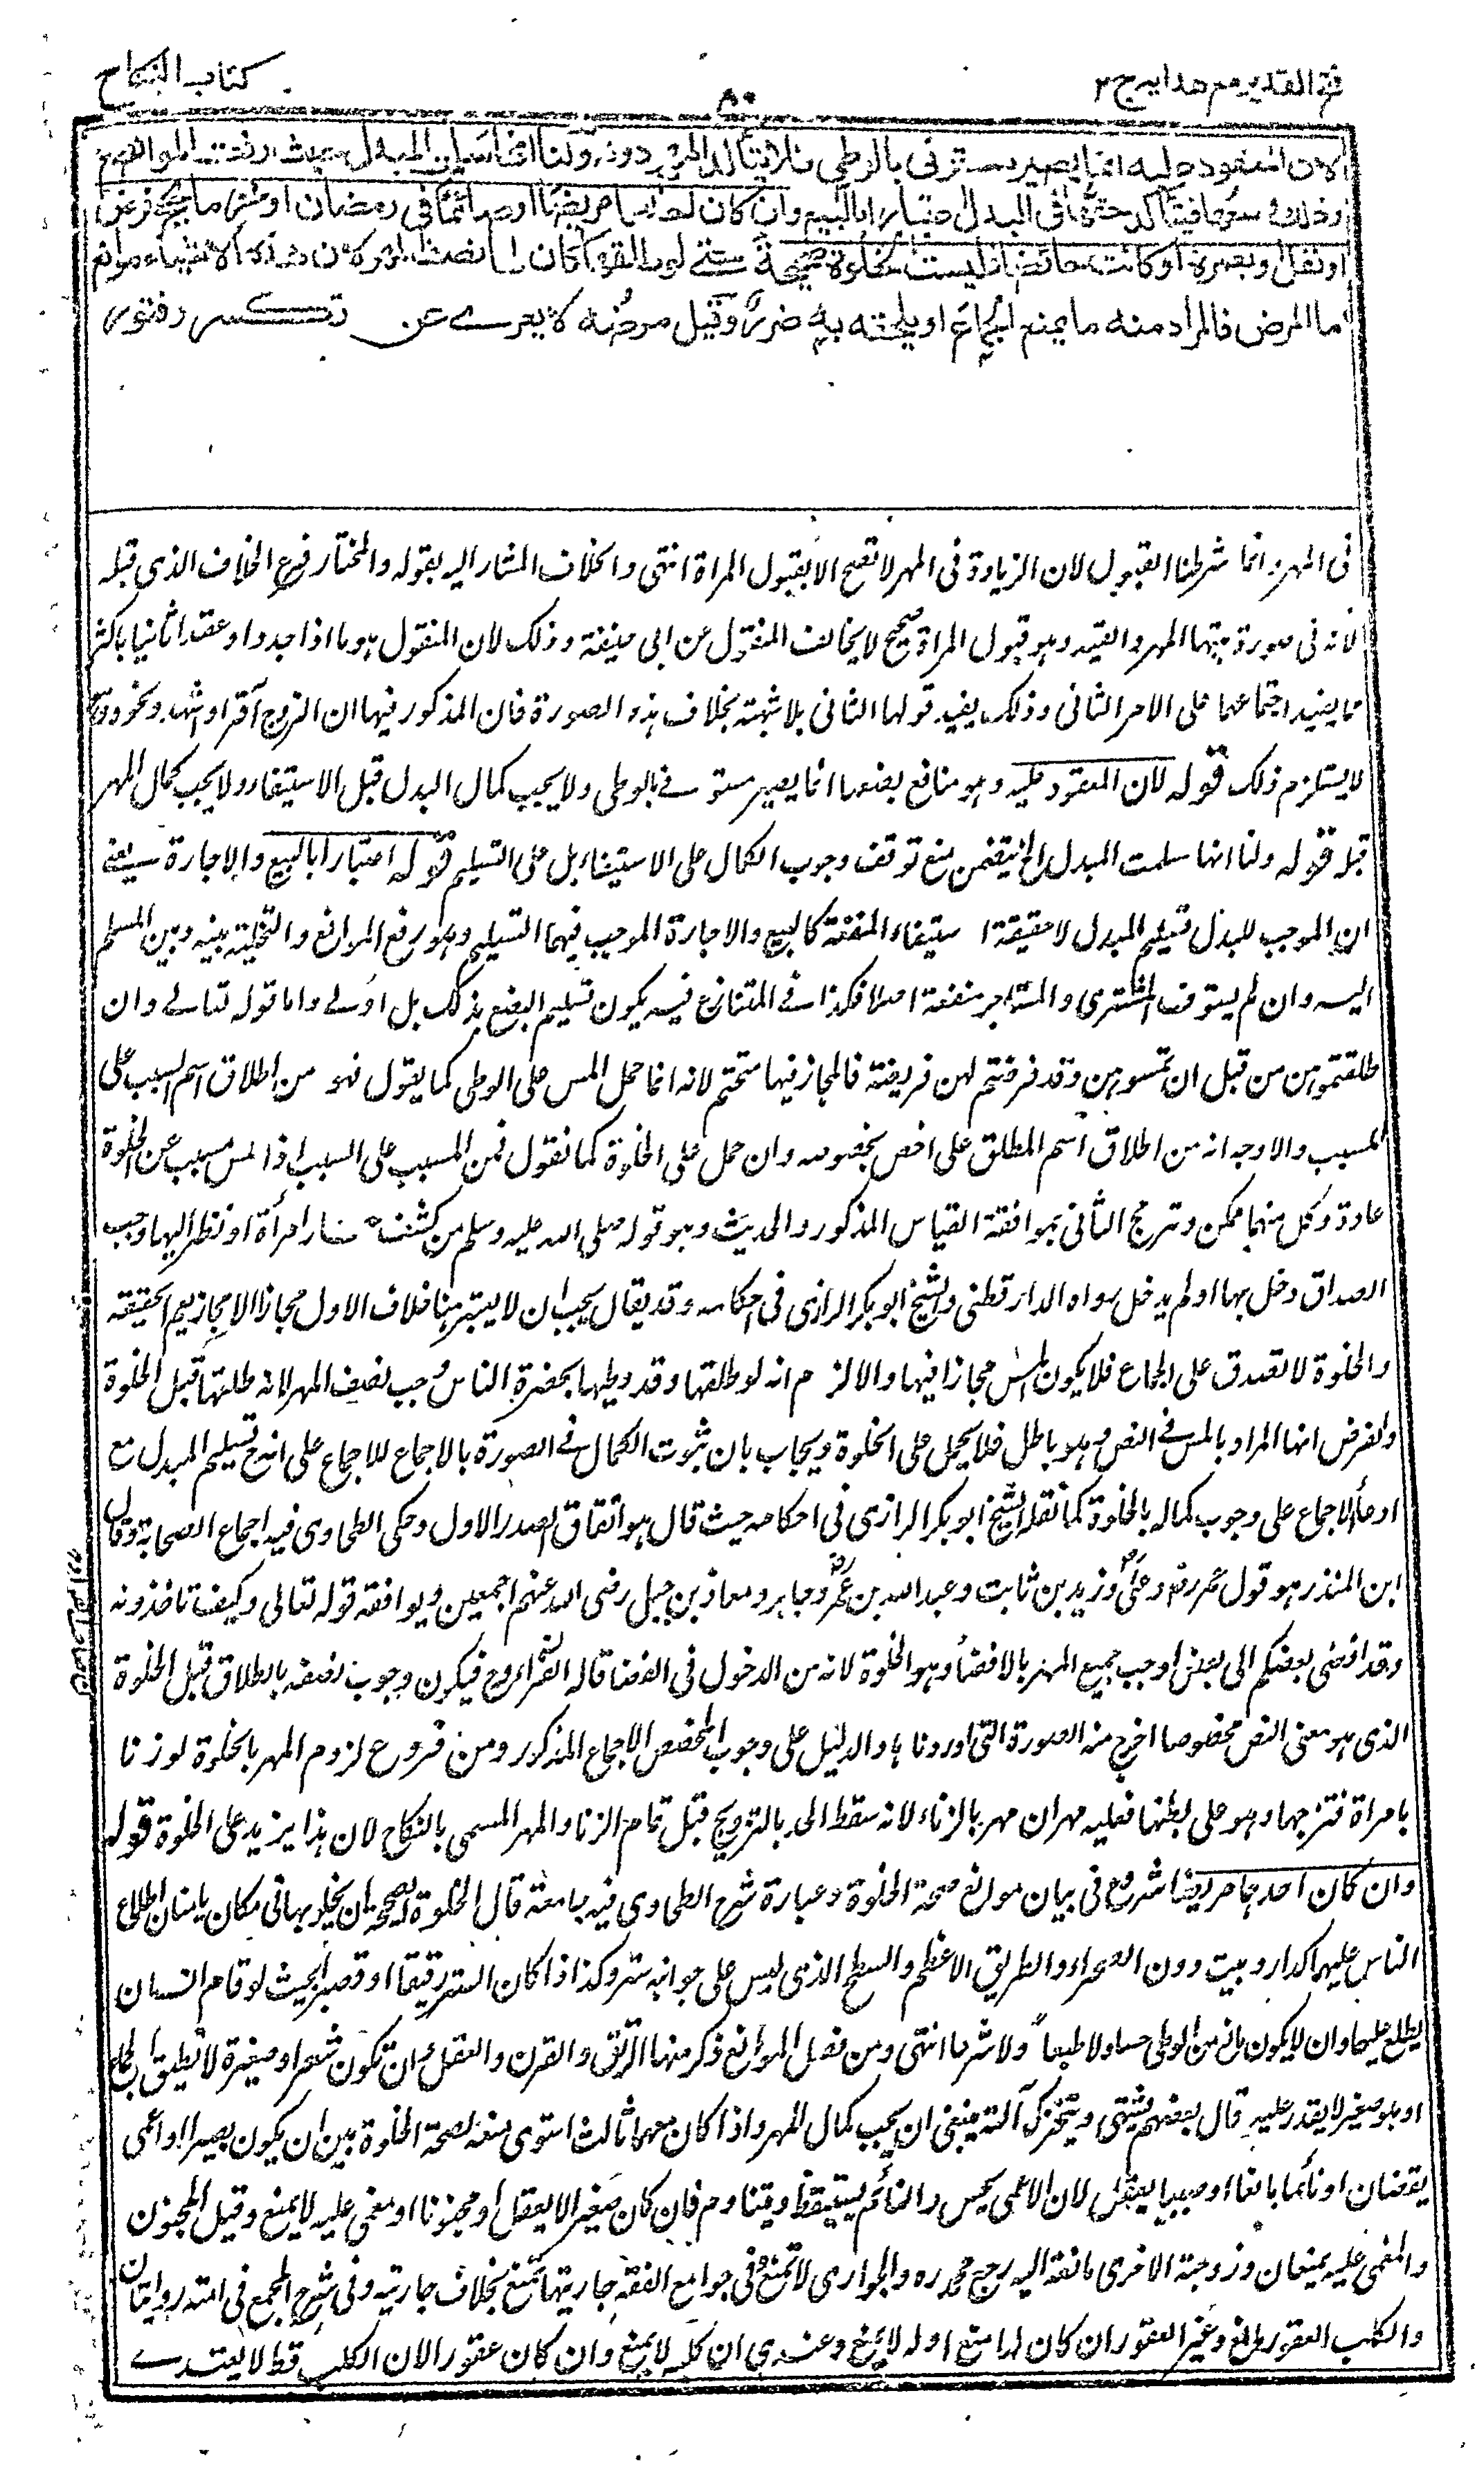 فتح القدير مع هدايه ج ٢
٨٠
كتاب النكاح
لان المعقود عليه انما يصير مستوفى بالوطى فلا يتأكد المهر دونه ولنا انها سلمت المبدل حيث رفعت الموانع
وذلك وسعها فيتأكد حقها فى البدل اعتبارا بالبيع وان كان احدهما مريضا او صائما فى رمضان او محرما بحج فرض
او نفل او بعمرة او كانت حائضا فليست الخلوة صحيحة حتى لو طلقها كان لها نصف المهر لان هذه الاشياء موانع
اما المرض فالمراد منه ما يمنع الجماع او يلحقه به ضرر وقيل مرضه لا يعرى عن تكسر وفتور
فى المهر وانما شرطنا القبول لان الزيادة فى المهر لا تصح الا بقبول المراة انتهى والخلاف المشار اليه بقوله والمختار فرع الخلاف الذى قبله
لانه فى صورة هبتها المهر والقيد وهو قبول المراة صحيح لا يخالف المنقول عن ابى حنيفة وذلك لان المنقول هو ما اذا جددا وعقدا ثانيا باكثر
مما يفيد اجتماعهما على الامر الثانى وذلك يفيد قولها الثانى بلا شبهة بخلاف هذه الصورة فان المذكور فيها ان الزوج اقر او اشهد ونحوه وهو
لا يستلزم ذلك قوله لان المعقود عليه وهو منافع بضعها انما يصير مستوفى بالوطى ولا يجب كمال البدل قبل الاستيفاء ولا يجب كمال المهر
قبله قوله ولنا انها سلمت المبدل الخ يتضمن منع توقف وجوب الكمال على الاستيفاء بل على التسليم قوله اعتبارا بالبيع والاجارة يعنى
ان الموجب للبدل تسليم المبدل لا حقيقة استيفاء المنفعة كالبيع والاجارة الموجب فيهما التسليم وهو رفع الموانع والتخلية بينه وبين المسلم
اليه وان لم يستوف المشترى والمستاجر منفعة اصلا فكذا فى المتنازع فيه يكون تسليم البضع بذلك بل اولى واما قوله تعالى وان
طلقتموهن من قبل ان تمسوهن وقد فرضتم لهن فريضة فالمجاز فيها متحتم لانه انما حمل المس على الوطى كما يقول فهو من اطلاق اسم السبب على
المسبب والاوجه انه من اطلاق اسم المطلق على اخص بخصوصه وان حمل على الخلوة كما نقول فمن المسبب على السبب اذ المس مسبب عن الخلوة
عادة وكل منهما ممكن وترجح الثانى بموافقة القياس المذكور والحديث وهو قوله صلى الله عليه وسلم من كشف خمار امرأة او نظر اليها وجب
الصداق دخل بها او لم يدخل رواه الدارقطنى والشيخ ابو بكر الرازى فى احكامه وقد يقال يجب ان لا يعتبر هنا خلاف الاول مجازا الا مجاز يعم الحقيقة
والخلوة لا تصدق على الجماع فلا يكون المس مجازا فيها والا لزم انه لو طلقها وقد وطيها بحضرة الناس وجب نصف المهر لانه طلقها قبل الخلوة
والفرض انها المراد بالمس فى النص وهو باطل فلا يحمل على الخلوة ويجاب بان ثبوت الكمال فى الصورة بالاجماع للاجماع على انه تسليم المبدل مع
ادعاء الاجماع على وجوب كماله بالخلوة كما نقله الشيخ ابو بكر الرازى فى احكامه حيث قال هو اتفاق الصدر الاول وحكى الطحاوى فيه اجماع الصحابة وقال
ابن المنذر هو قول عمر رض وعلى وزيد بن ثابت وعبد الله بن عمر وجابر ومعاذ بن جبل رضى الله عنهم اجمعين ويوافقه قوله تعالى وكيف تاخذونه
وقد افضى بعضكم الى بعض اوجب جميع المهر بالافضاء وهو الخلوة لانه من الدخول فى الفضا قاله الفراء رح فيكون وجوب نصفه بالطلاق قبل الخلوة
الذى هو معنى النص مخصوصا اخرج منه الصورة التى اوردناها والدليل على وجوب المخصص الاجماع المذكور ومن فروع لزوم المهر بالخلوة لو زنا
بامراة فتزوجها وهو على بطنها فعليه مهران مهر بالزناء لانه سقط الحد بالتزويج قبل تمام الزنا والمهر المسمى بالنكاح لان هذا يزيد على الخلوة قوله
وان كان احدهما مريضا شروع فى بيان موانع صحة الخلوة وعبارة شرح الطحاوى فيه جامعة قال الخلوة الصحيحة ان يخلو بها فى مكان يامنان اطلاع
الناس عليهما كدار وبيت دون الصحراء والطريق الاعظم والسطح الذى ليس على جوانبه ستر وكذا اذا كان الستر رقيقا او قصيرا بحيث لو قام انسان
يطلع عليهما وان لا يكون مانع من الوطى حسا ولا طبعا ولا شرعا انتهى ومن فصل الموانع ذكر منها الرتق والقرن والعفل وان تكون شعراء وصغيرة لا تطيق الجماع
او هو صغير لا يقدر عليه قال بعضهم يشتهى ويتحرك آلته ينبغى ان يجب كمال المهر واذا كان معهما ثالث استوى منعه لصحة الخلوة بين ان يكون بصيرا او اعمى
يقضان او نائما بالغا او صبيا يعقل لان الاعمى يحس والنائم يستيقظ ويتناوم فان كان صغيرا لا يعقل او مجنونا او مغمى عليه لا يمنع وقيل المجنون
والمغمى عليه يمنعان وزوجته الاخرى مانعة اليه رجع محمد ره والجوارى لا تمنع وفى جوامع الفقه جاريتها تمنع بخلاف جاريته وفى شرح المجمع فى امته روايتان
والكلب العقور مانع وغير العقور ان كان لها منع او له لا يمنع وعندى ان كلبه لا يمنع وان كان عقورا لان الكلب قط لا يعتدى